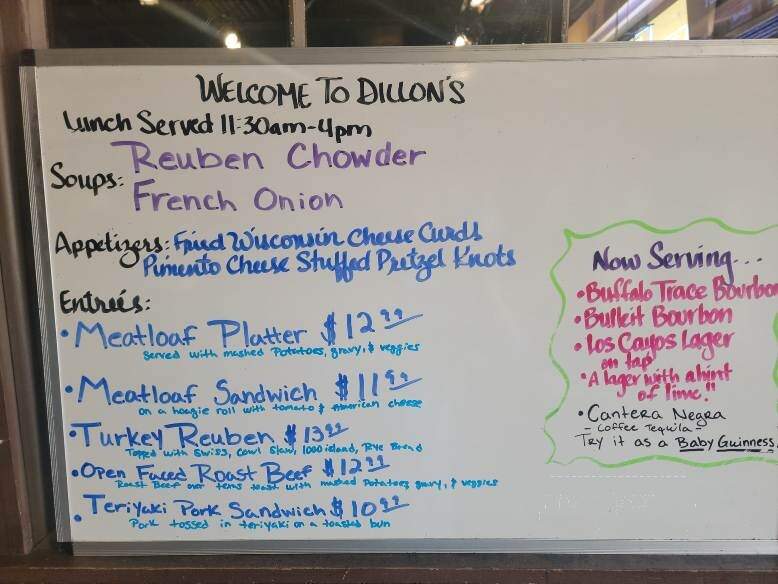 WELCOME TO DILLON'S
Lunch Served 11:30am-4pm
Soups: Reuben Chowder
French Onion
Appetizers: Fried Wisconsin Cheese Curds
Pimento Cheese Stuffed Pretzel Knots
Entreés:
• Meatloaf Platter $12.99
served with mashed Potatoes, gravy, & veggies
• Meatloaf Sandwich $11.99
on a hoagie roll with tomato & American cheese
• Turkey Reuben $13.99
Topped with Swiss, Cowl Slaw, 1000 island, Rye Bread
• Open Faced Roast Beef $12.99
Roast Beef over texas toast with mashed Potatoes gravy, & veggies
• Teriyaki Pork Sandwich $10.99
Pork tossed in teriyaki on a toasted bun
Now Serving...
• Buffalo Trace Bourbon
• Bulleit Bourbon
• Los Cayos Lager
on tap
"A lager with a hint
of lime."
• Cantera Negra
- Coffee Tequila -
Try it as a Baby Guinness